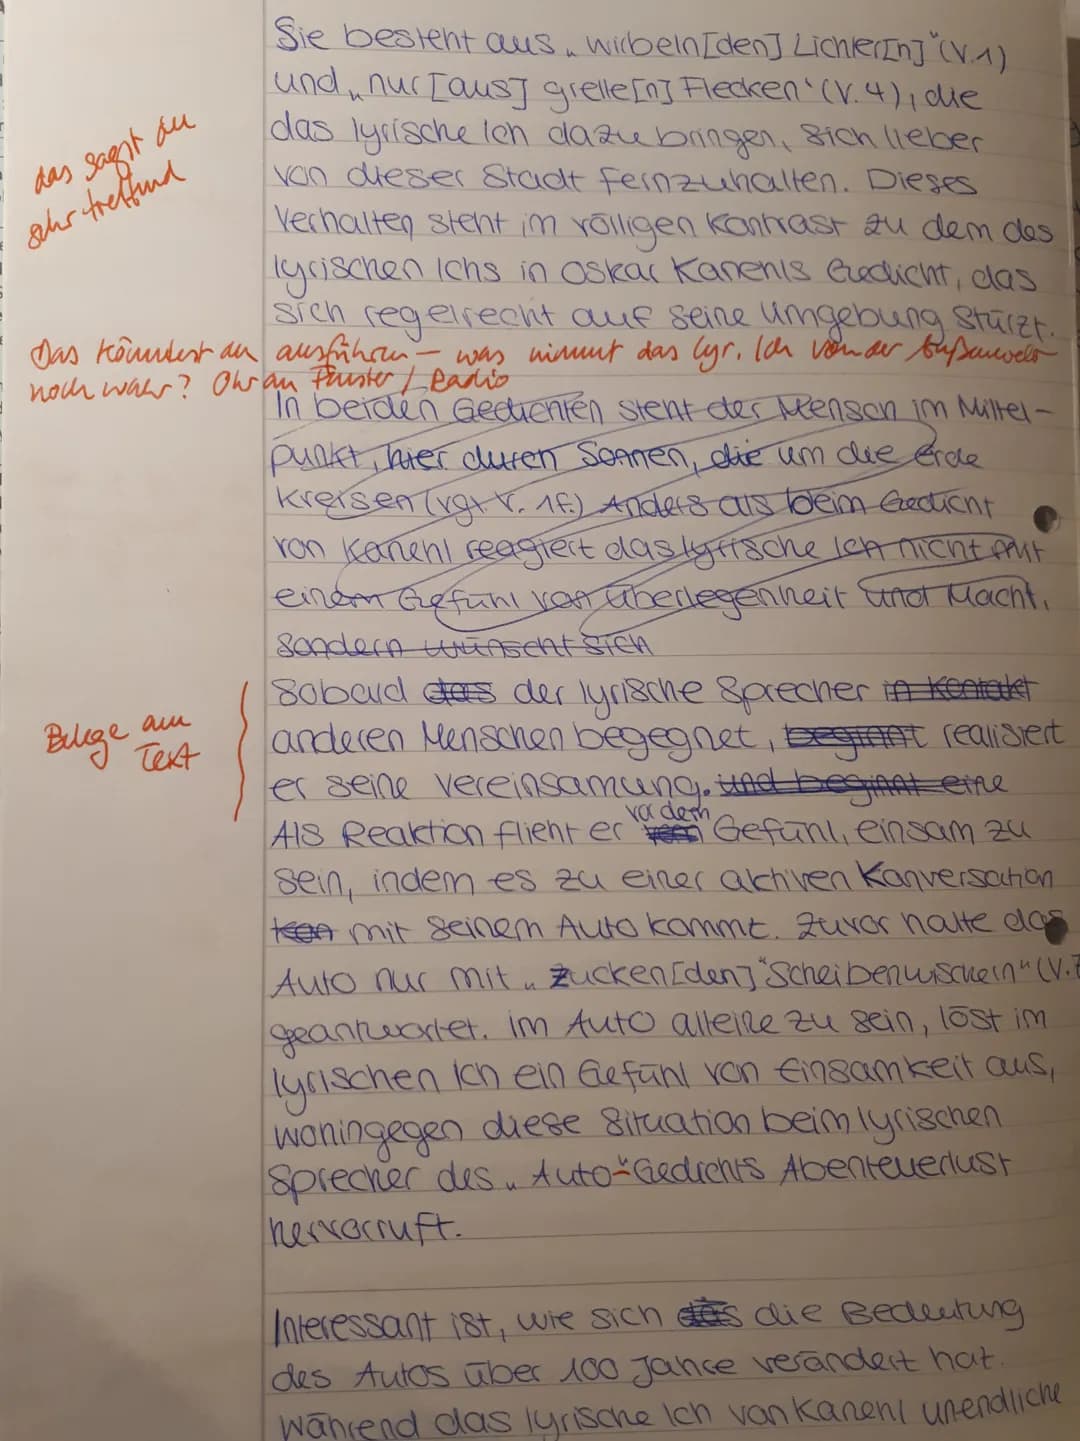 Sie besteht aus „wirbeln[den] Lichter[n]" (V.1)
und „nur [aus] grelle[n] Flecken" (V.4), die
das lyrische Ich dazu bringen, sich lieber
von dieser Stadt fernzuhalten. Dieses
Verhalten steht im völligen Kontrast zu dem des
lyrischen Ichs in Oskar Kanehls Gedicht, das
sich regelrecht auf seine Umgebung stürzt.
das sagst du
sehr treffend
Das könntest du ausführen – was nimmt das lyr. Ich von der Außenwelt
noch wahr? Ohr am Fenster / Radio
In beiden Gedichten steht der Mensch im Mittel-
punkt, hier durch Sonnen, die um die Erde
kreisen (vgl. V. 1f.) Anders als beim Gedicht
von Kanehl reagiert das lyrische Ich nicht mit
einem Gefühl von Überlegenheit und Macht,
sondern wünscht sich
Sobald das der lyrische Sprecher in Kontakt
anderen Menschen begegnet, beginnt realisiert
er seine Vereinsamung. und beginnt eine
Belege am
Text
vor dem
Als Reaktion flieht er Gefühl, einsam zu
sein, indem es zu einer aktiven Konversation
kon mit seinem Auto kommt. Zuvor hatte das
Auto nur mit „zucken[den] Scheibenwischern" (V.7
geantwortet. Im Auto alleine zu sein, löst im
lyrischen Ich ein Gefühl von Einsamkeit aus,
wohingegen diese Situation beim lyrischen
Sprecher des „Auto"-Gedichts Abenteuerlust
hervorruft.
Interessant ist, wie sich das die Bedeutung
des Autos über 100 Jahre verändert hat.
Während das lyrische Ich von Kanehl unendliche